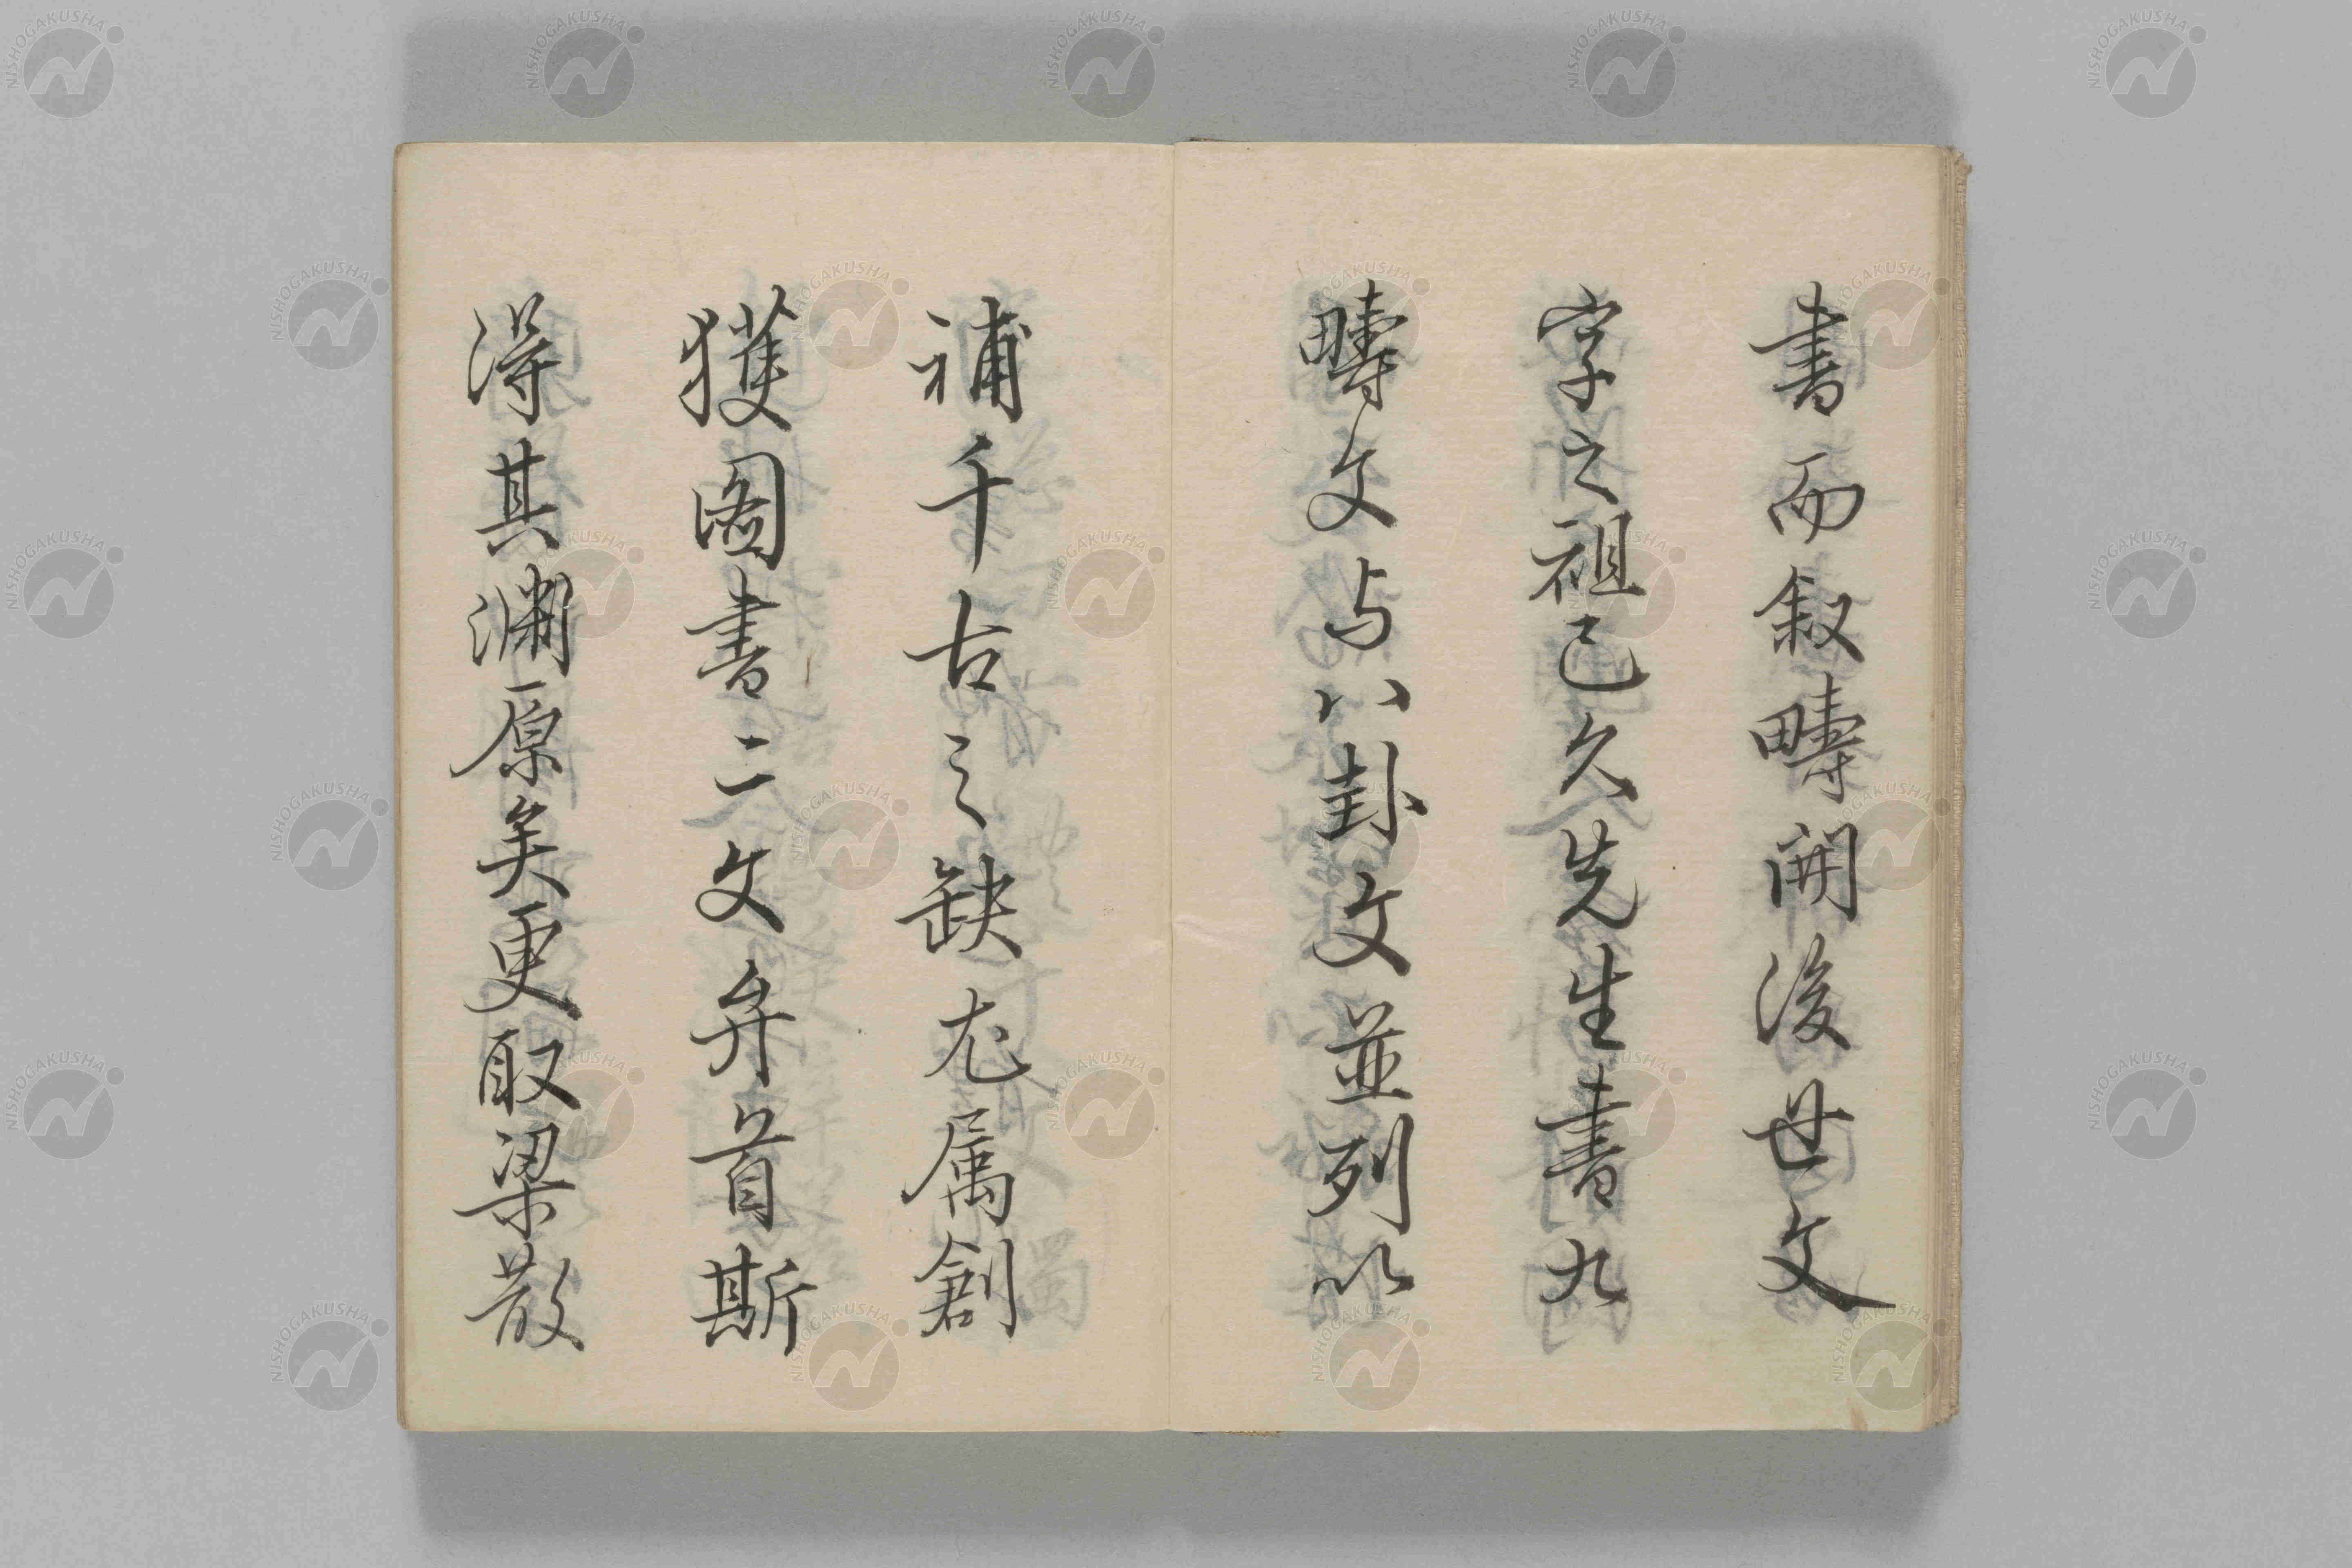 書而叙疇開後世文
字之祖已久先生書九
疇文与八卦文並列以
補千古之缺尤属創
獲圖書二文弁首斯
得其淵原矣更取梁散